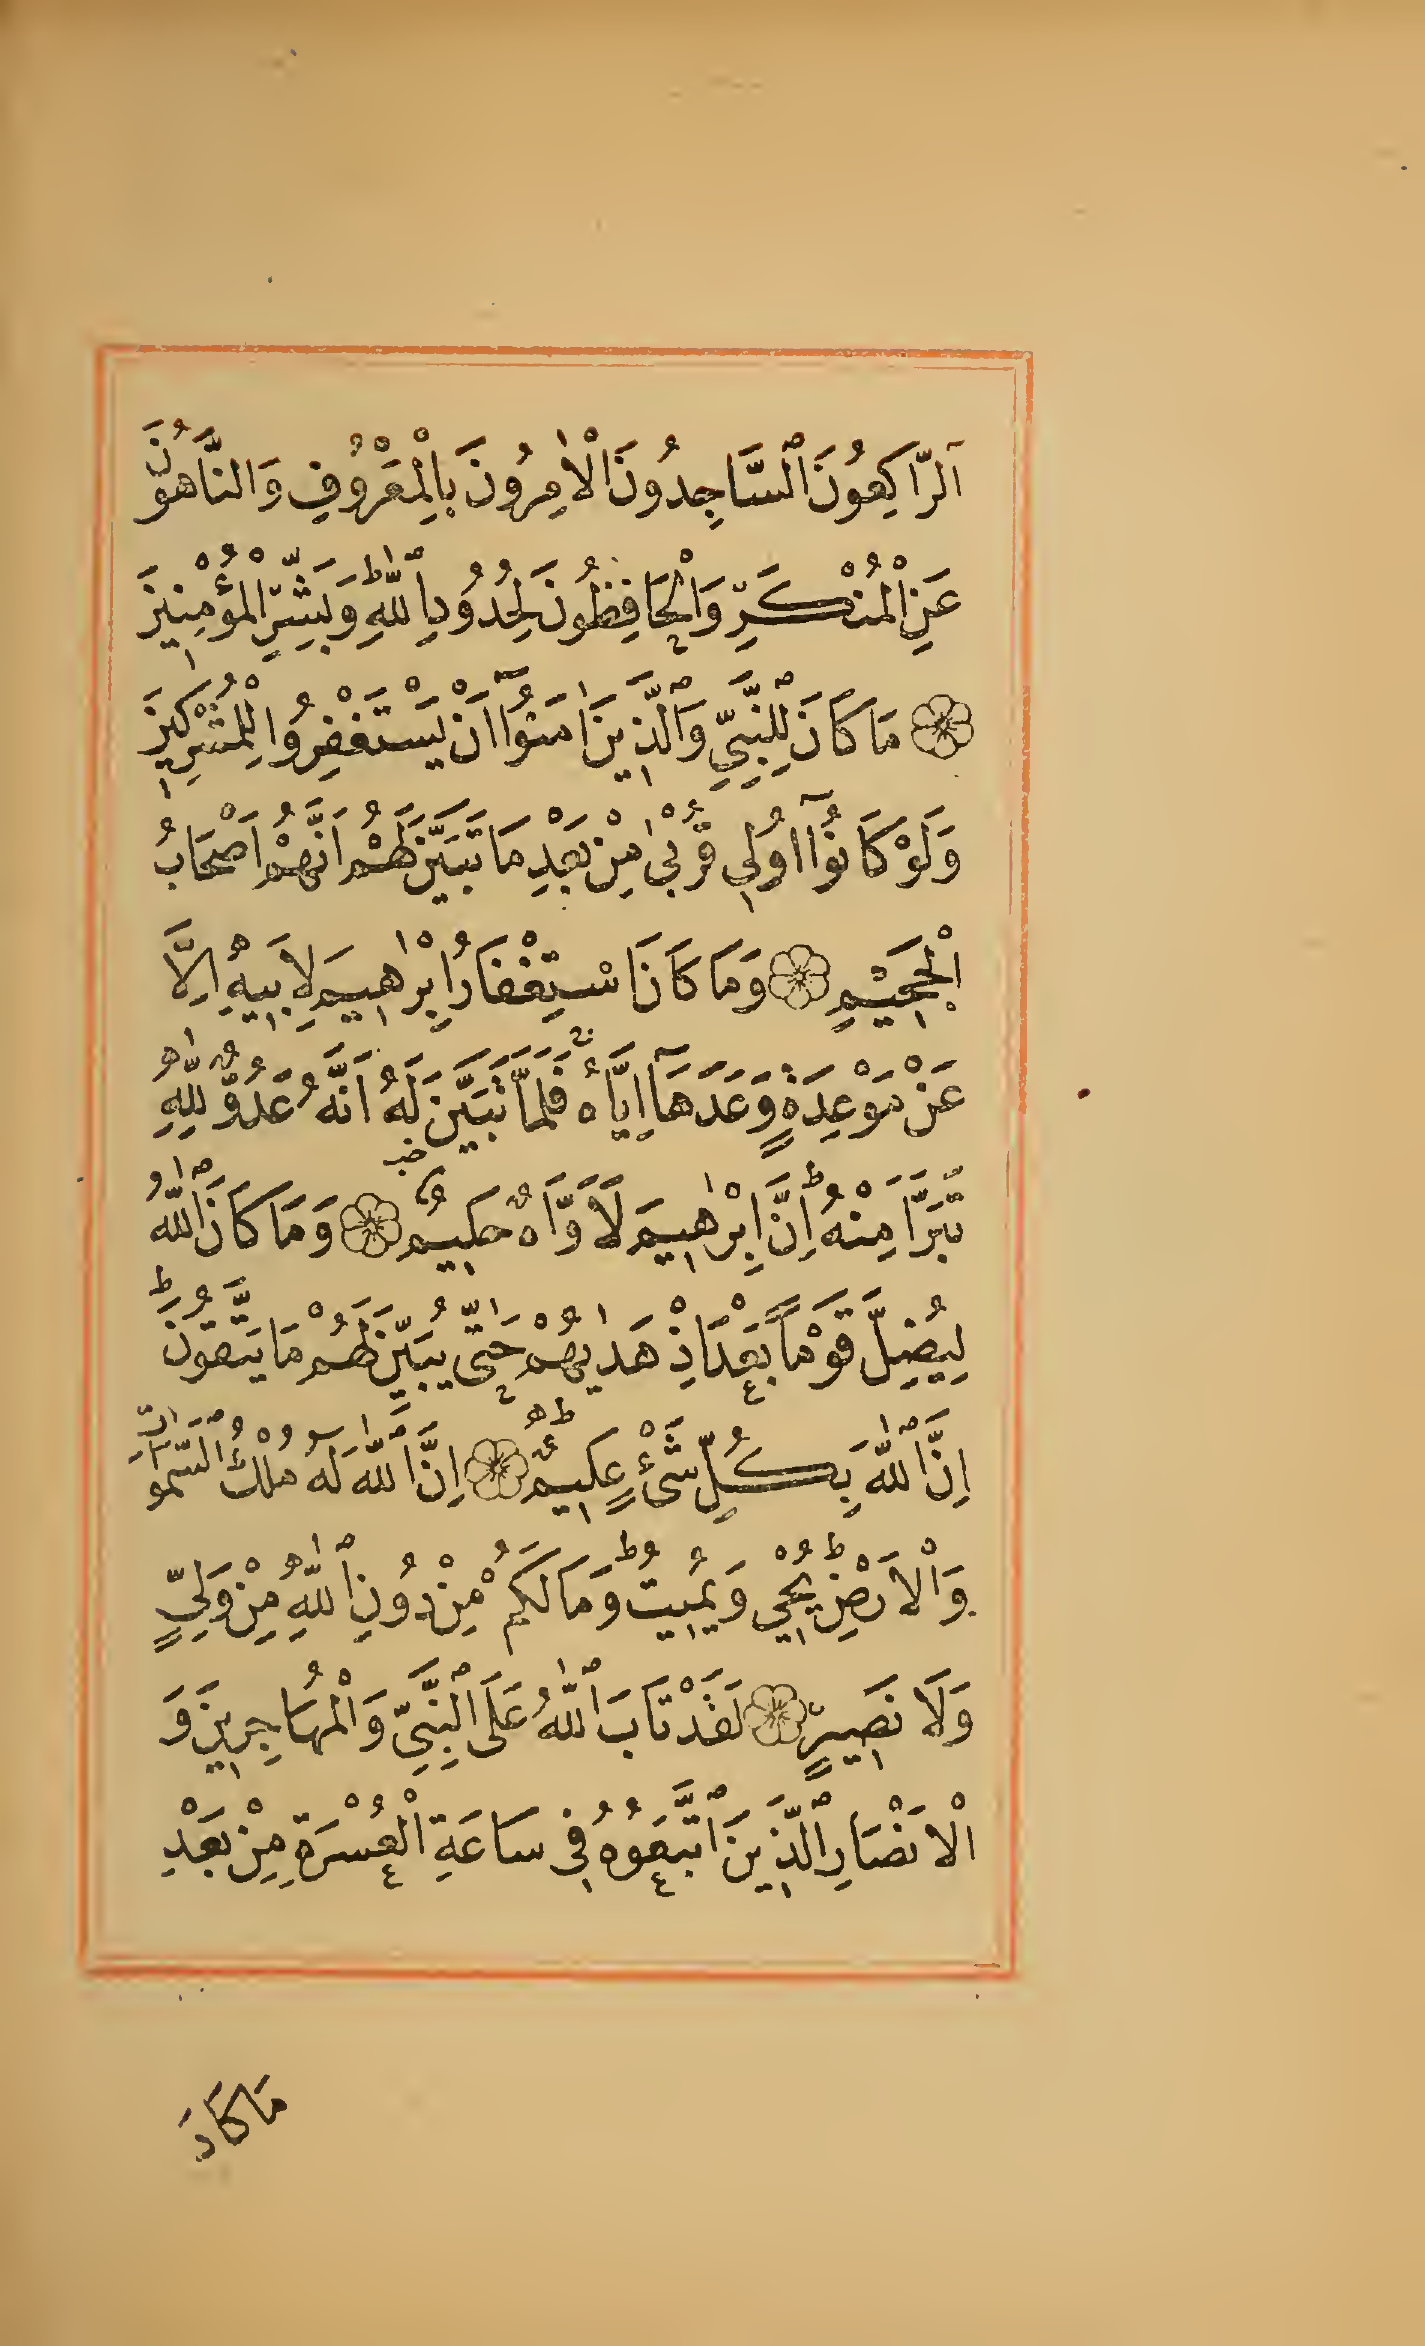 اَلرَّاكِعُونَ ٱلسَّاجِدُونَ ٱلْاٰمِرُونَ بِالْمَعْرُوفِ وَالنَّاهُونَ
عَنِ الْمُنْكَرِ وَالْحَافِظُونَ لِحُدُودِ ٱللّٰهِ ط وَبَشِّرِ الْمُؤْمِنِينَ
مَا كَانَ لِلنَّبِيِّ وَٱلَّذِينَ اٰمَنُوٓا اَنْ يَسْتَغْفِرُوا لِلْمُشْرِكِينَ
وَلَوْ كَانُوٓا اُولِي قُرْبٰى مِنْ بَعْدِ مَا تَبَيَّنَ لَهُمْ اَنَّهُمْ اَصْحَابُ
الْجَحِيْمِ وَمَا كَانَ اسْتِغْفَارُ اِبْرٰهِيمَ لِاَبِيهِ اِلَّا
عَنْ مَوْعِدَةٍ وَعَدَهَآ اِيَّاهُ فَلَمَّا تَبَيَّنَ لَهُ اَنَّهُ عَدُوٌّ لِلّٰهِ
تَبَرَّاَ مِنْهُ ط اِنَّ اِبْرٰهِيمَ لَاَوَّاهٌ حَلِيمٌ وَمَا كَانَ ٱللّٰهُ
لِيُضِلَّ قَوْمًا بَعْدَ اِذْ هَدٰيهُمْ حَتّٰى يُبَيِّنَ لَهُمْ مَا يَتَّقُونَ ط
اِنَّ ٱللّٰهَ بِكُلِّ شَىْءٍ عَلِيمٌ اِنَّ ٱللّٰهَ لَهُ مُلْكُ السَّمٰوَاتِ
وَالْاَرْضِ ط يُحْيِي وَيُمِيتُ ط وَمَا لَكُمْ مِنْ دُونِ ٱللّٰهِ مِنْ وَلِيٍّ
وَلَا نَصِيرٍ لَقَدْ تَابَ ٱللّٰهُ عَلَى النَّبِيِّ وَالْمُهَاجِرِينَ وَ
الْاَنْصَارِ ٱلَّذِينَ ٱتَّبَعُوهُ فِي سَاعَةِ الْعُسْرَةِ مِنْ بَعْدِ
مَا كَادَ